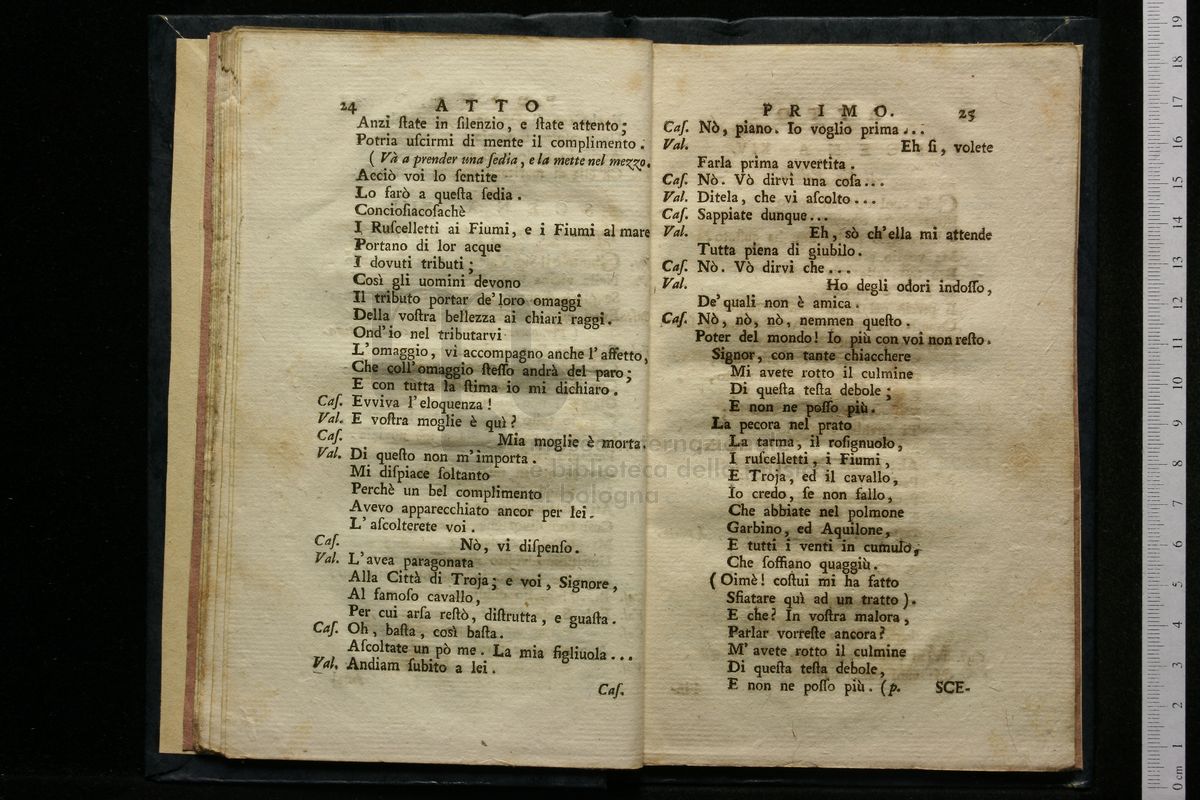 24 ATTO
Anzi ſtate in ſilenzio, e ſtate attento;
Potria uſcirmi di mente il complimento.
( Và a prender una ſedia, e la mette nel mezzo.
Acciò voi lo ſentite
Lo farò a queſta ſedia.
Conciofiacoſachè
I Ruſcelletti ai Fiumi, e i Fiumi al mare
Portano di lor acque
I dovuti tributi;
Così gli uomini devono
Il tributo portar de' loro omaggi
Della voſtra bellezza ai chiari raggi.
Ond' io nel tributarvi
L' omaggio, vi accompagno anche l' affetto,
Che coll' omaggio ſteſſo andrà del paro;
E con tutta la ſtima io mi dichiaro.
Caſ. Evviva l' eloquenza!
Val. E voſtra moglie è quì?
Caſ. Mia moglie è morta.
Val. Di queſto non m' importa.
Mi diſpiace ſoltanto
Perchè un bel complimento
Avevo apparecchiato ancor per lei.
L' aſcolterete voi.
Caſ. Nò, vi diſpenſo.
Val. L' avea paragonata
Alla Città di Troja; e voi, Signore,
Al famoſo cavallo,
Per cui arſa reſtò, diſtrutta, e guaſta.
Caſ. Oh, baſta, così baſta.
Aſcoltate un pò me. La mia figliuola...
Val. Andiam ſubito a lei.
Caſ.
PRIMO. 25
Caſ. Nò, piano. Io voglio prima...
Val. Eh ſi, volete
Farla prima avvertita.
Caſ. Nò. Vò dirvi una coſa...
Val. Ditela, che vi aſcolto...
Caſ. Sappiate dunque...
Val. Eh, sò ch' ella mi attende
Tutta piena di giubilo.
Caſ. Nò. Vò dirvi che...
Val. Ho degli odori indoſſo,
De' quali non è amica.
Caſ. Nò, nò, nò, nemmen queſto.
Poter del mondo! Io più con voi non reſto.
Signor, con tante chiacchere
Mi avete rotto il culmine
Di queſta teſta debole;
E non ne poſſo più.
La pecora nel prato
La tarma, il roſignuolo,
I ruſcelletti, i Fiumi,
E Troja, ed il cavallo,
Io credo, ſe non fallo,
Che abbiate nel polmone
Garbino, ed Aquilone,
E tutti i venti in cumulo,
Che ſoffiano quaggiù.
( Oimè! coſtui mi ha fatto
Sfiatare quì ad un tratto ).
E che? In voſtra malora,
Parlar vorreſte ancora?
M' avete rotto il culmine
Di queſta teſta debole,
E non ne poſſo più. (p. SCE-
internazionale
e biblioteca della
di bologna
0 cm 1 2 3 4 5 6 7 8 9 10 11 12 13 14 15 16 17 18 19